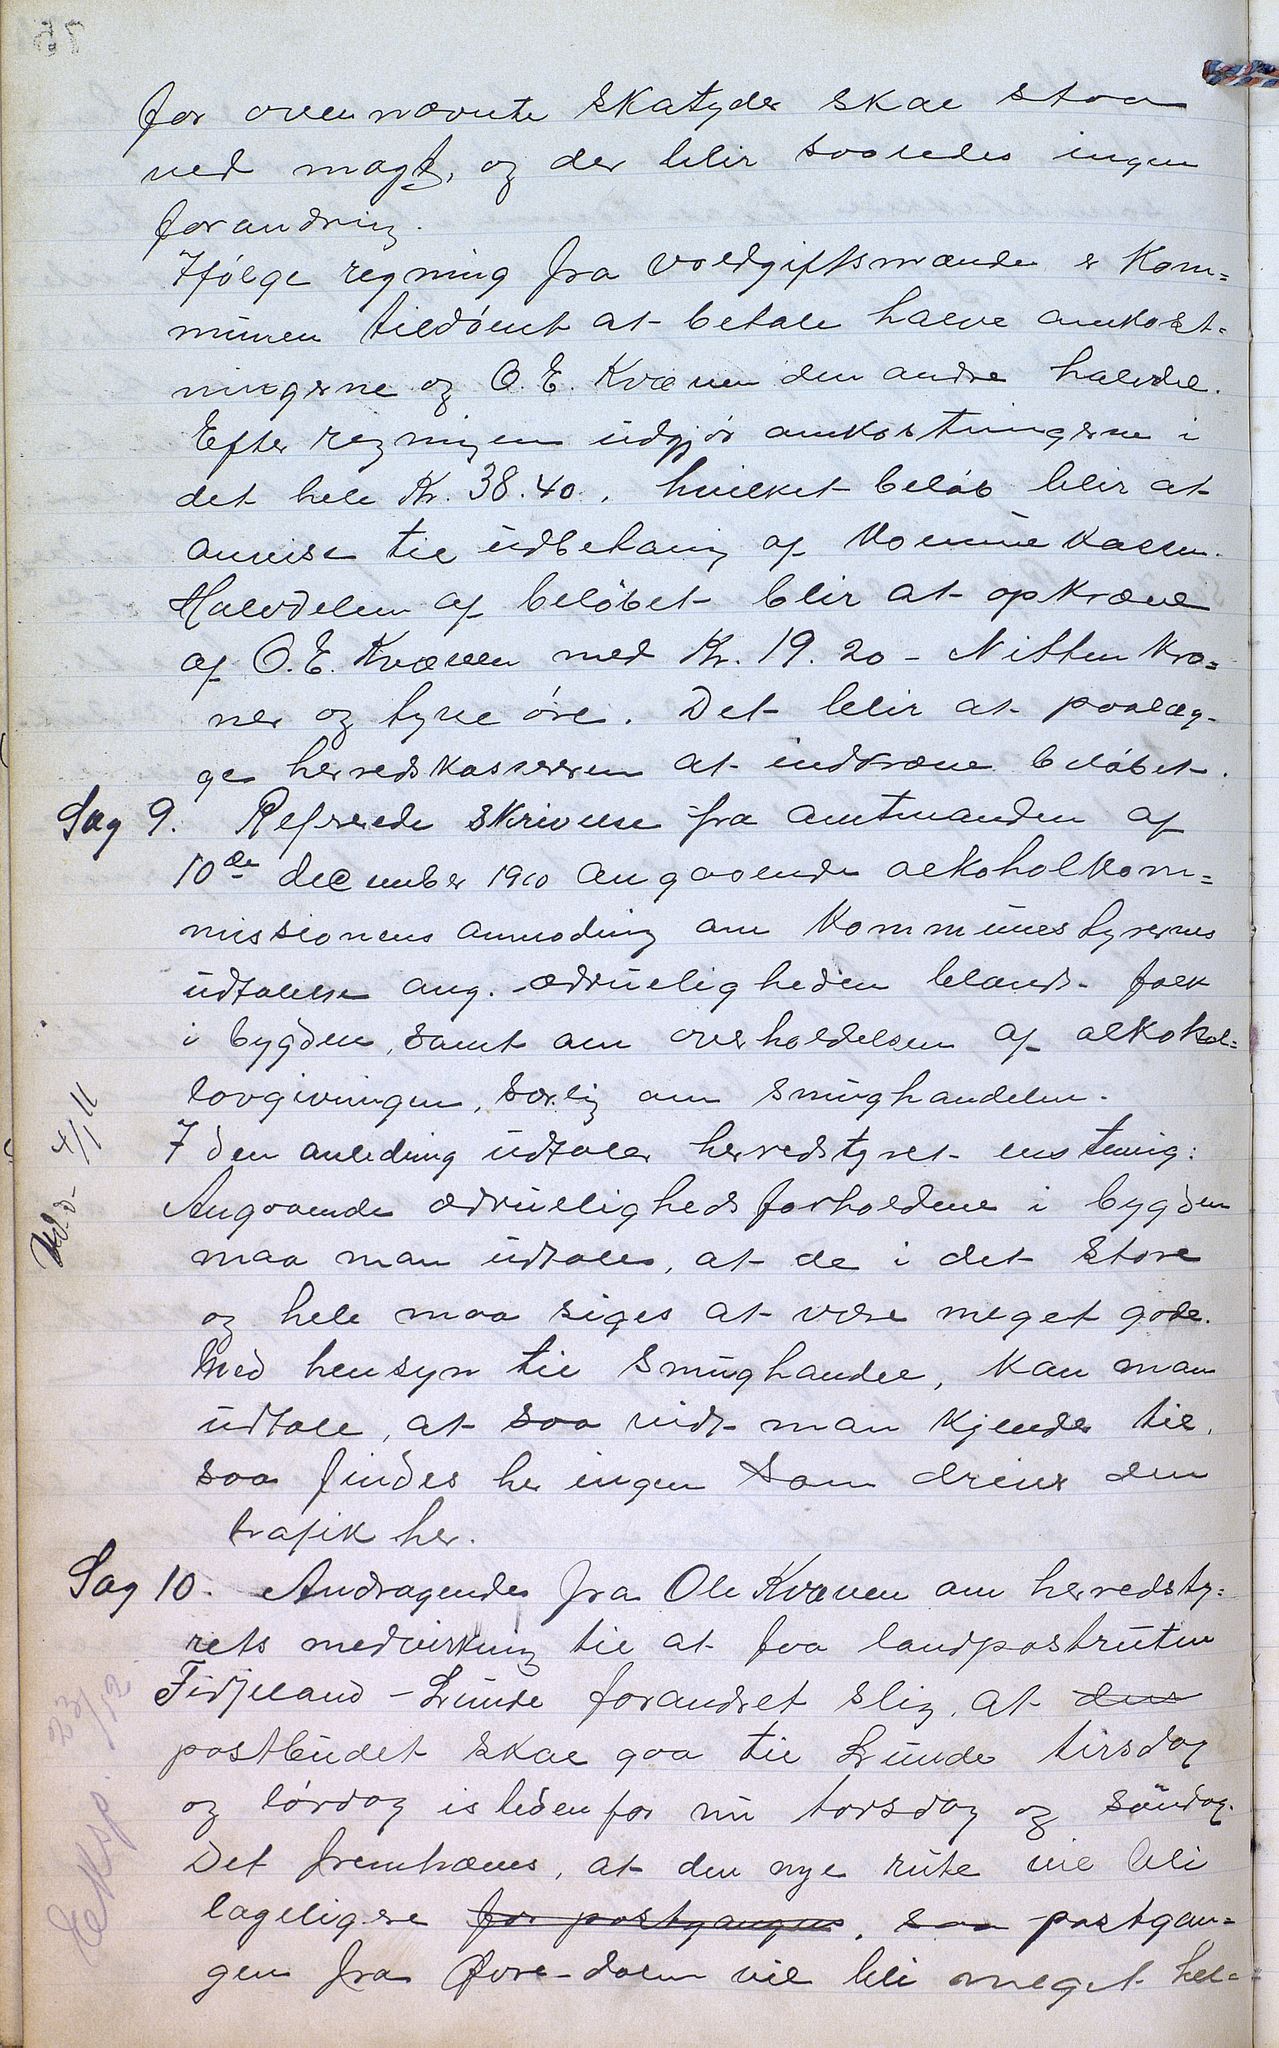 for ovennævnte skatyder skal staa
ved magt, og der blir saaledes ingen
forandring.
Ifølge regning fra voldgiftsmænde er Kom=
munen tildømt at betale halve omkost=
ningerne og O. E. Kvæven den andre halvdel.
Efter regningen udgjør omkostningerne i
det hele Kr. 38.40, hvilket beløb blir at
anvise til udbetaling af Kommunekassen.
Halvdelen af beløbet blir at opkræve
af O. E. Kvæven med Kr. 19.20 - Nitten Kro=
ner og tyve øre. Det blir at paalæg-
ge herredskassereren at inddrive beløbet.
Sag 9. Refererede skrivelse fra amtmanden af
10de december 1910 angaaende alkoholkom=
missionens anmoding om Kommunestyrernes
udtalelse ang. ædrueligheden blandt folk
i bygden, samt om overholdelsen af alkohol=
lovgivningen, særlig om smughandelen.
I den anledning udtaler herredstyret enstemig:
Angaaende ædruelighedsforholdene i bygden
maa man udtale, at de i det store
og hele maa siges at være meget gode.
Med hensyn til smughandel, kan man
udtale, at saa vidt man kjender til,
saa findes her ingen som driver den
trafik her.
4/1 11
Sag 10. Andragende fra Ole Kvæven om herredsty=
rets medvirkning til at faa landpostruten
Fidjeland - Lunde forandret slig, at den
postbudet skal gaa til Lunde tirsdag
og lørdag isteden for nu torsdag og søndag.
Det fremhæves, at den nye rute vil bli
lageligere for postgangen, saa postgan=
gen fra Øvre-dalen vil bli meget hel=
Eksp. 23/12